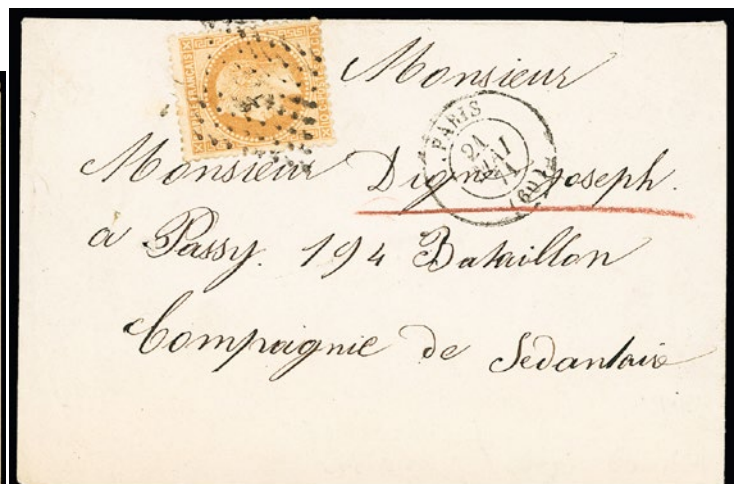 Monsieur
Monsieur Digne Joseph.
a Passy. 194 Bataillon
Compagnie de Sedantaire
PARIS
21
MAI
71
(60)